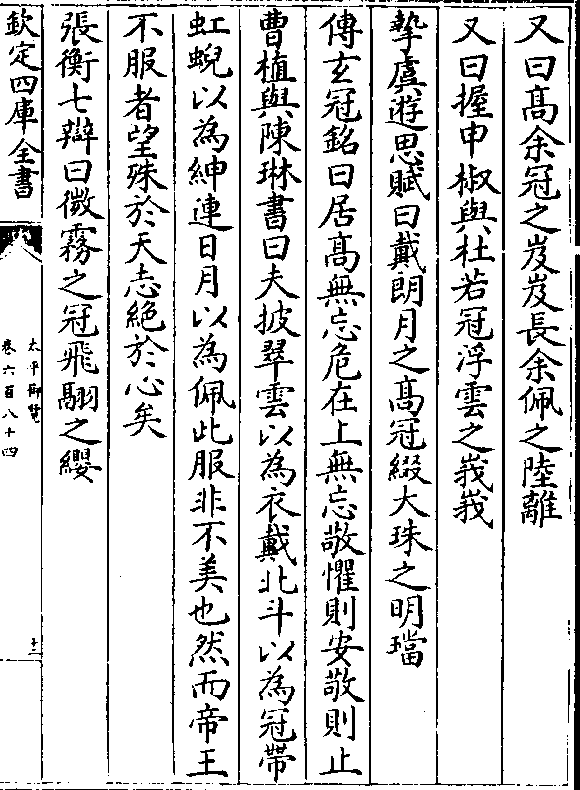 又曰髙余冠之岌岌長余佩之陸離
又曰握申椒與杜若冠浮雲之峩峩
摯虞遊思賦曰戴朗月之髙冠綴大珠之明璫
傅玄冠銘曰居髙無忘危在上無忘敬懼則安敬則止
曹植與陳琳書曰夫披翠雲以為衣戴北斗以為冠帶
虹蜺以為紳連日月以為佩此服非不美也然而帝王
不服者望殊於天志絶於心矣
張衡七辯曰微霧之冠飛翮之纓
欽定四庫全書
太平御覽
卷六百八十四
十二